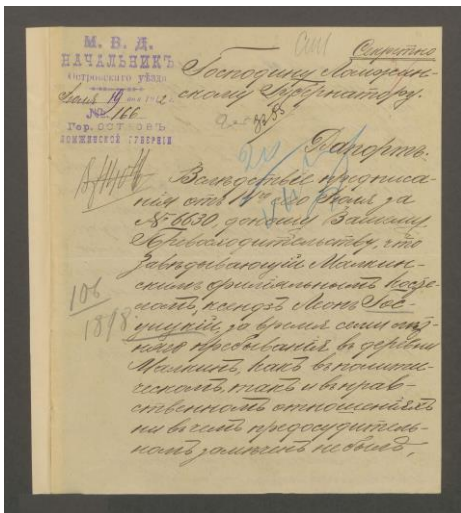 М. В. Д.
НАЧАЛЬНИКЪ
Островскаго уѣзда
Іюля 19 дня 1902
№ 166
Гор. ОСТРОВЪ
ЛОМЖИНСКОЙ ГУБЕРНІИ
Секретно
Господину Ломжин-
скому Губернатору.
Рапортъ.
Вслѣдствіе предписа-
нія отъ Іюля за
№ 6630, доношу Вашему
Превосходительству, что
завѣдывающій Малкин-
скимъ филіяльнымъ косте-
ломъ, ксендзъ Леонъ Гос-
за время
няго пребыванія въ деревни
Малкинѣ, какъ въ полити-
ческомъ, такъ и въ нрав-
ственномъ отношеніяхъ
ни въ чемъ предосудитель-
номъ замѣченъ не былъ,
106
1898